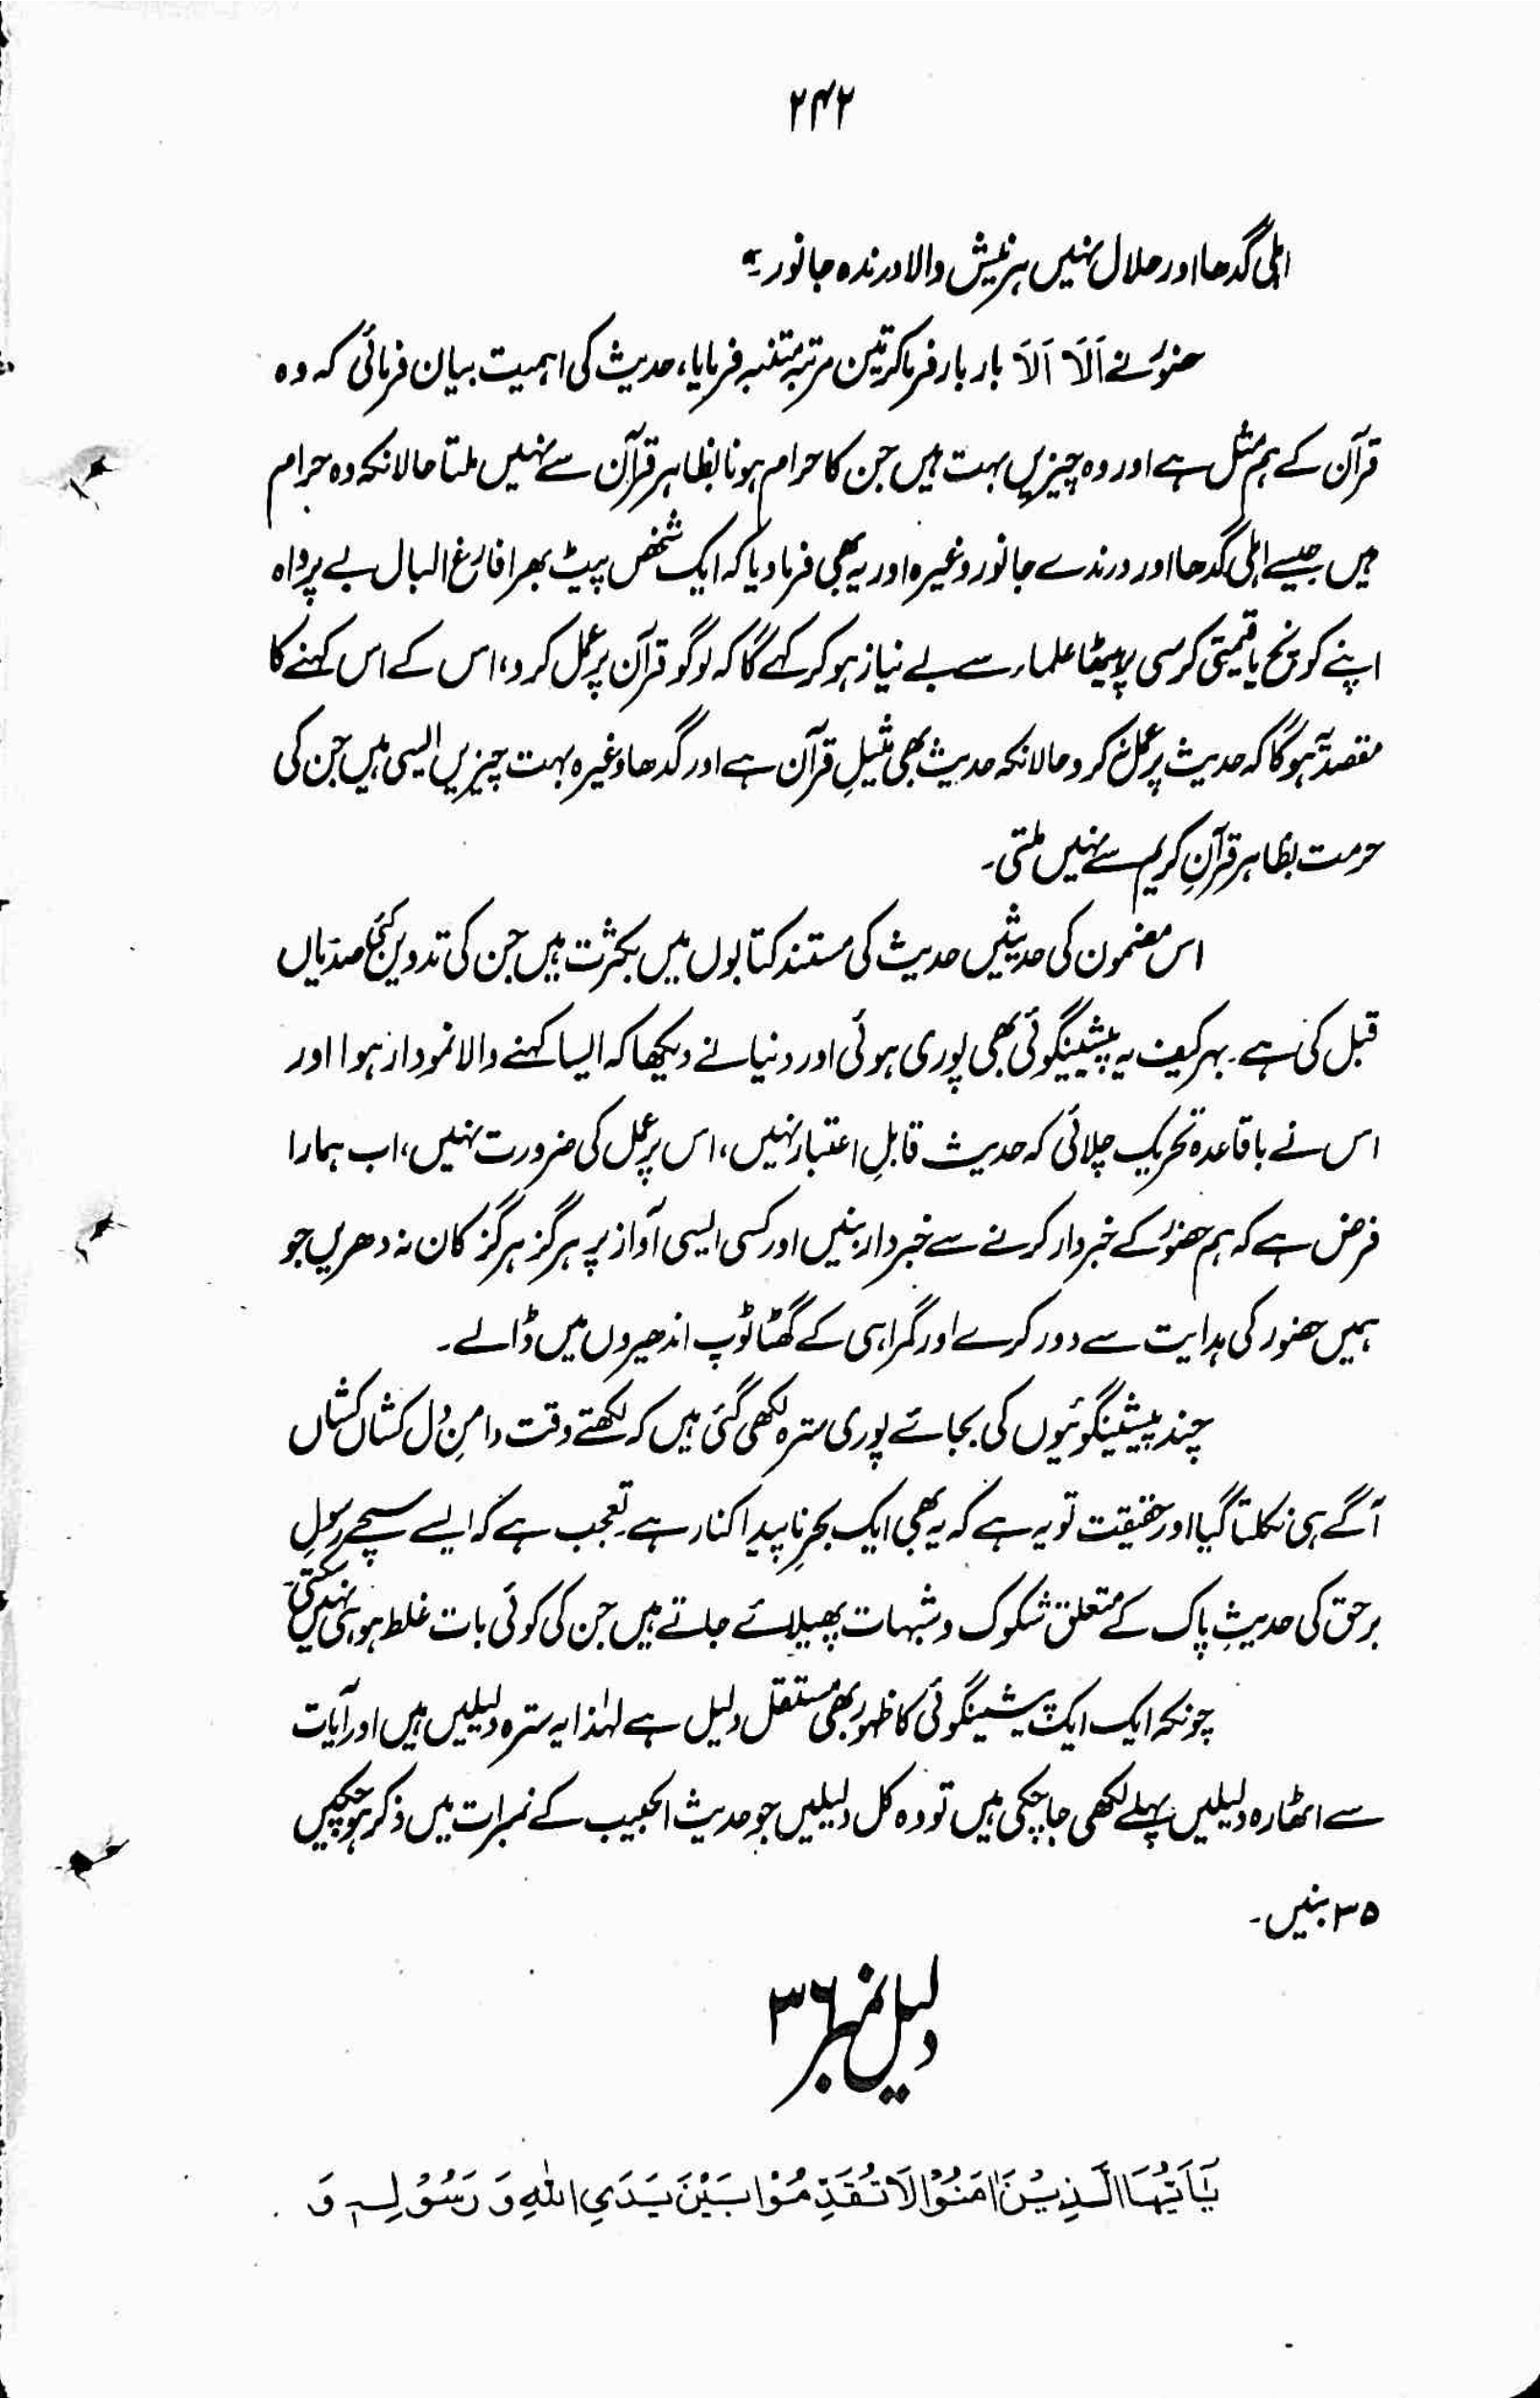 ۲۴۲
اہلی گدھا اور حلال نہیں ہر نیش والا درندہ جانور۔"
حضورؐ نے اَلَا اَلَا بار بار فرما کر تین مرتبہ متنبہ فرمایا، حدیث کی اہمیت بیان فرمائی کہ وہ
قرآن کے ہم مثل ہے اور وہ چیزیں بہت ہیں جن کا حرام ہونا بظاہر قرآن سے نہیں ملتا حالانکہ وہ حرام
ہیں جیسے اہلی گدھا اور درندے جانور وغیرہ اور یہ بھی فرما دیا کہ ایک شخص پیٹ بھرا فارغ البال بے پرواہ
اپنے کوچ یا قیمتی کرسی پر بیٹھا علماء سے بے نیاز ہو کر کہے گا کہ لوگو قرآن پر عمل کرو، اس کے اس کہنے کا
مقصد یہ ہوگا کہ حدیث پر عمل نہ کرو حالانکہ حدیث بھی مثیلِ قرآن ہے اور گدھا وغیرہ بہت چیزیں ایسی ہیں جن کی
حرمت بظاہر قرآنِ کریم سے نہیں ملتی۔
اس مضمون کی حدیثیں حدیث کی مستند کتابوں میں بکثرت ہیں جن کی تدوین کئی صدیاں
قبل کی ہے۔ بہر کیف یہ پیشینگوئی بھی پوری ہوئی اور دنیا نے دیکھا کہ ایسا کہنے والا نمودار ہوا اور
اس نے باقاعدہ تحریک چلائی کہ حدیث قابلِ اعتبار نہیں، اس پر عمل کی ضرورت نہیں، اب ہمارا
فرض ہے کہ ہم حضورؐ کے خبردار کرنے سے خبردار بنیں اور کسی ایسی آواز پر ہرگز ہرگز کان نہ دھریں جو
ہمیں حضور کی ہدایت سے دور کرے اور گمراہی کے گھٹا ٹوپ اندھیروں میں ڈالے۔
چند پیشینگوئیوں کی بجائے پوری سترہ لکھی گئی ہیں کہ لکھتے وقت دامنِ دل کشاں کشاں
آگے ہی نکلتا گیا اور حقیقت تو یہ ہے کہ یہ بھی ایک بحرِ ناپیدا کنار ہے۔ تعجب ہے کہ ایسے سچے رسولِ
برحق کی حدیثِ پاک کے متعلق شکوک و شبہات پھیلائے جاتے ہیں جن کی کوئی بات غلط ہو ہی نہیں سکتی۔
چونکہ ایک ایک پیشینگوئی کا ظہور بھی مستقل دلیل ہے لہٰذا یہ سترہ دلیلیں ہیں اور آیات
سے اٹھارہ دلیلیں پہلے لکھی جا چکی ہیں تو وہ کل دلیلیں جو حدیث الحبیب کے نمبرات میں ذکر ہو چکیں
۳۵ بنیں۔
دلیل نمبر ۳۶
یٰٓاَیُّهَا الَّذِیْنَ اٰمَنُوْا لَا تُقَدِّمُوْا بَیْنَ یَدَیِ اللّٰهِ وَ رَسُوْلِهٖ وَ